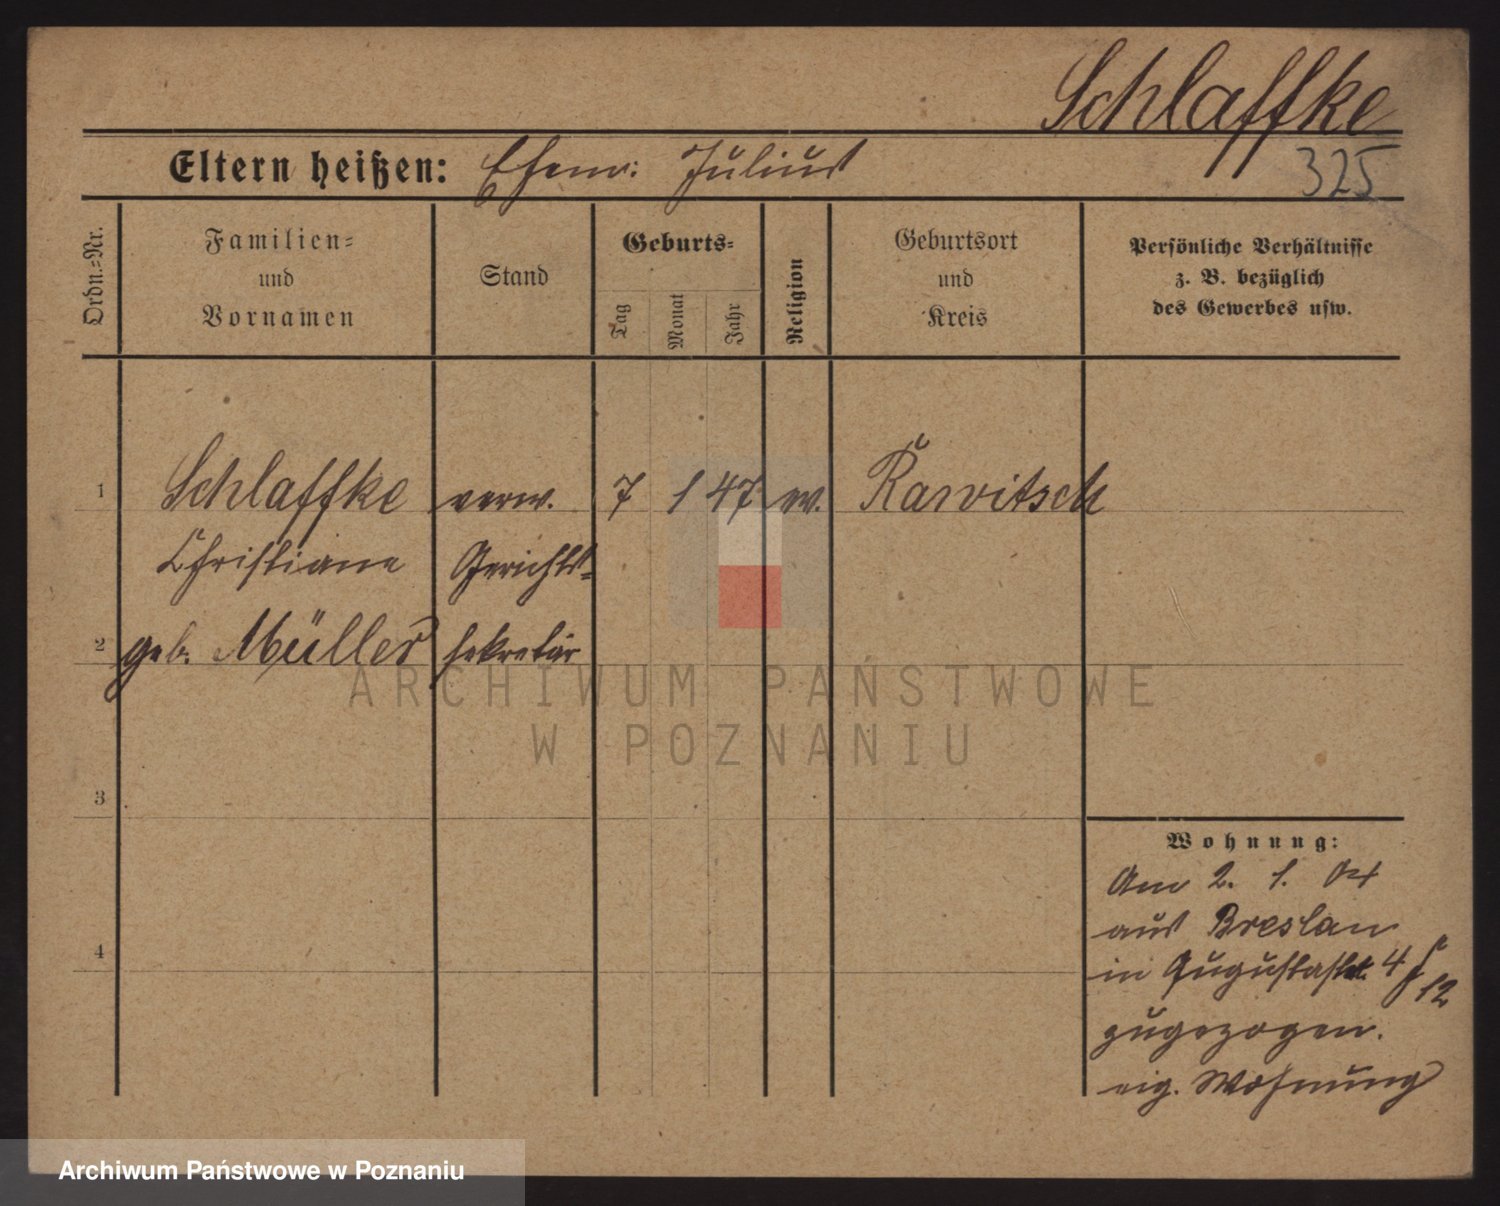 Schlaffke
Eltern heißen: Ehem: Julius
325
Ordn.=Nr.
Familien=
und
Vornamen
Stand
Geburts=
Tag
Monat
Jahr
Religion
Geburtsort
und
Kreis
Persönliche Verhältnisse
z. B. bezüglich
des Gewerbes usw.
1 Schlaffke verw. 7 1 47 ev. Rawitsch
Christiane Gerichts=
2 geb. Müller sekretär
3
4
Wohnung:
Am 2. 1.
aus Breslau
in Augustastr. 4
12
zugezogen.
eig. Wohnung
ARCHIWUM PAŃSTWOWE
W POZNANIU
Archiwum Państwowe w Poznaniu